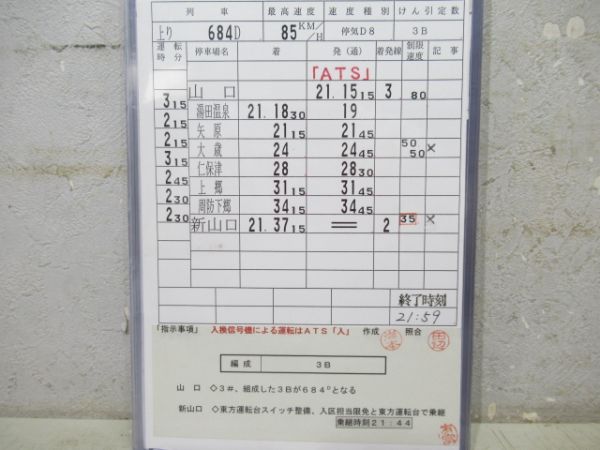 列車 最高速度 速度種別 けん引定数
上り 684D 85KM/H 停気D8 3B
運転時分 停車場名 着 発(通) 着発線 制限速度 記事
「ATS」
山口 21.15 15 3 80
3 15
湯田温泉 21.18 30 19
2 15
矢原 21 15 21 45
2 15
大歳 24 24 45 50 50 ×
3 15
仁保津 28 28 30
2 45
上郷 31 15 31 45
2 30
周防下郷 34 15 34 45
2 30
新山口 21.37 15 = 2 35 ×
終了時刻
21:59
「指示事項」 入換信号機による運転はATS「入」 作成 照合
編成 3B
山口 ◇3#、組成した3Bが684Dとなる
新山口 ◇東方運転台スイッチ整備、入区担当限免と東方運転台で乗継
乗継時刻21:44